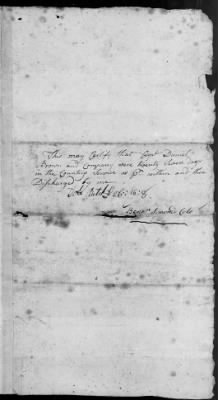 This may Certify that Capt Daniel
Brown and Company were Twenty Seven Days
in the Country Service as pr within and then
Discharged by me
Benjn Simonds Colo